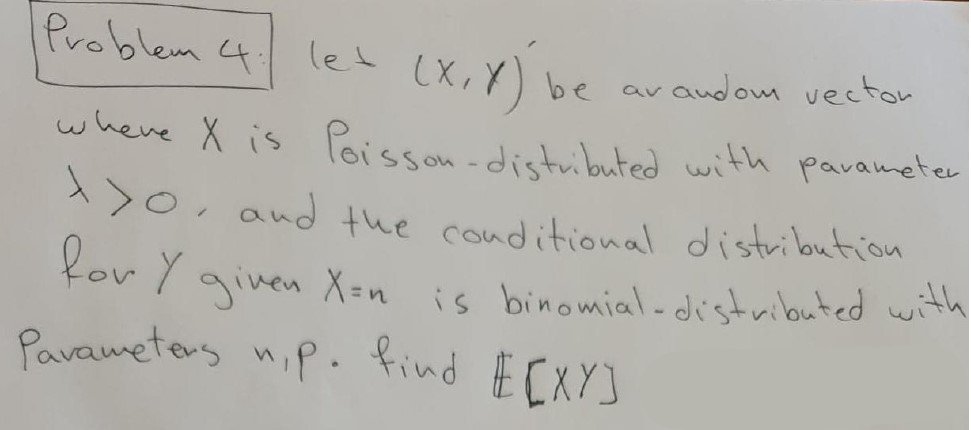 Problem 4: let (X,Y) be a random vector
where X is Poisson-distributed with parameter
λ>0, and the conditional distribution
for Y given X=n is binomial-distributed with
Parameters n,p. find E[XY]